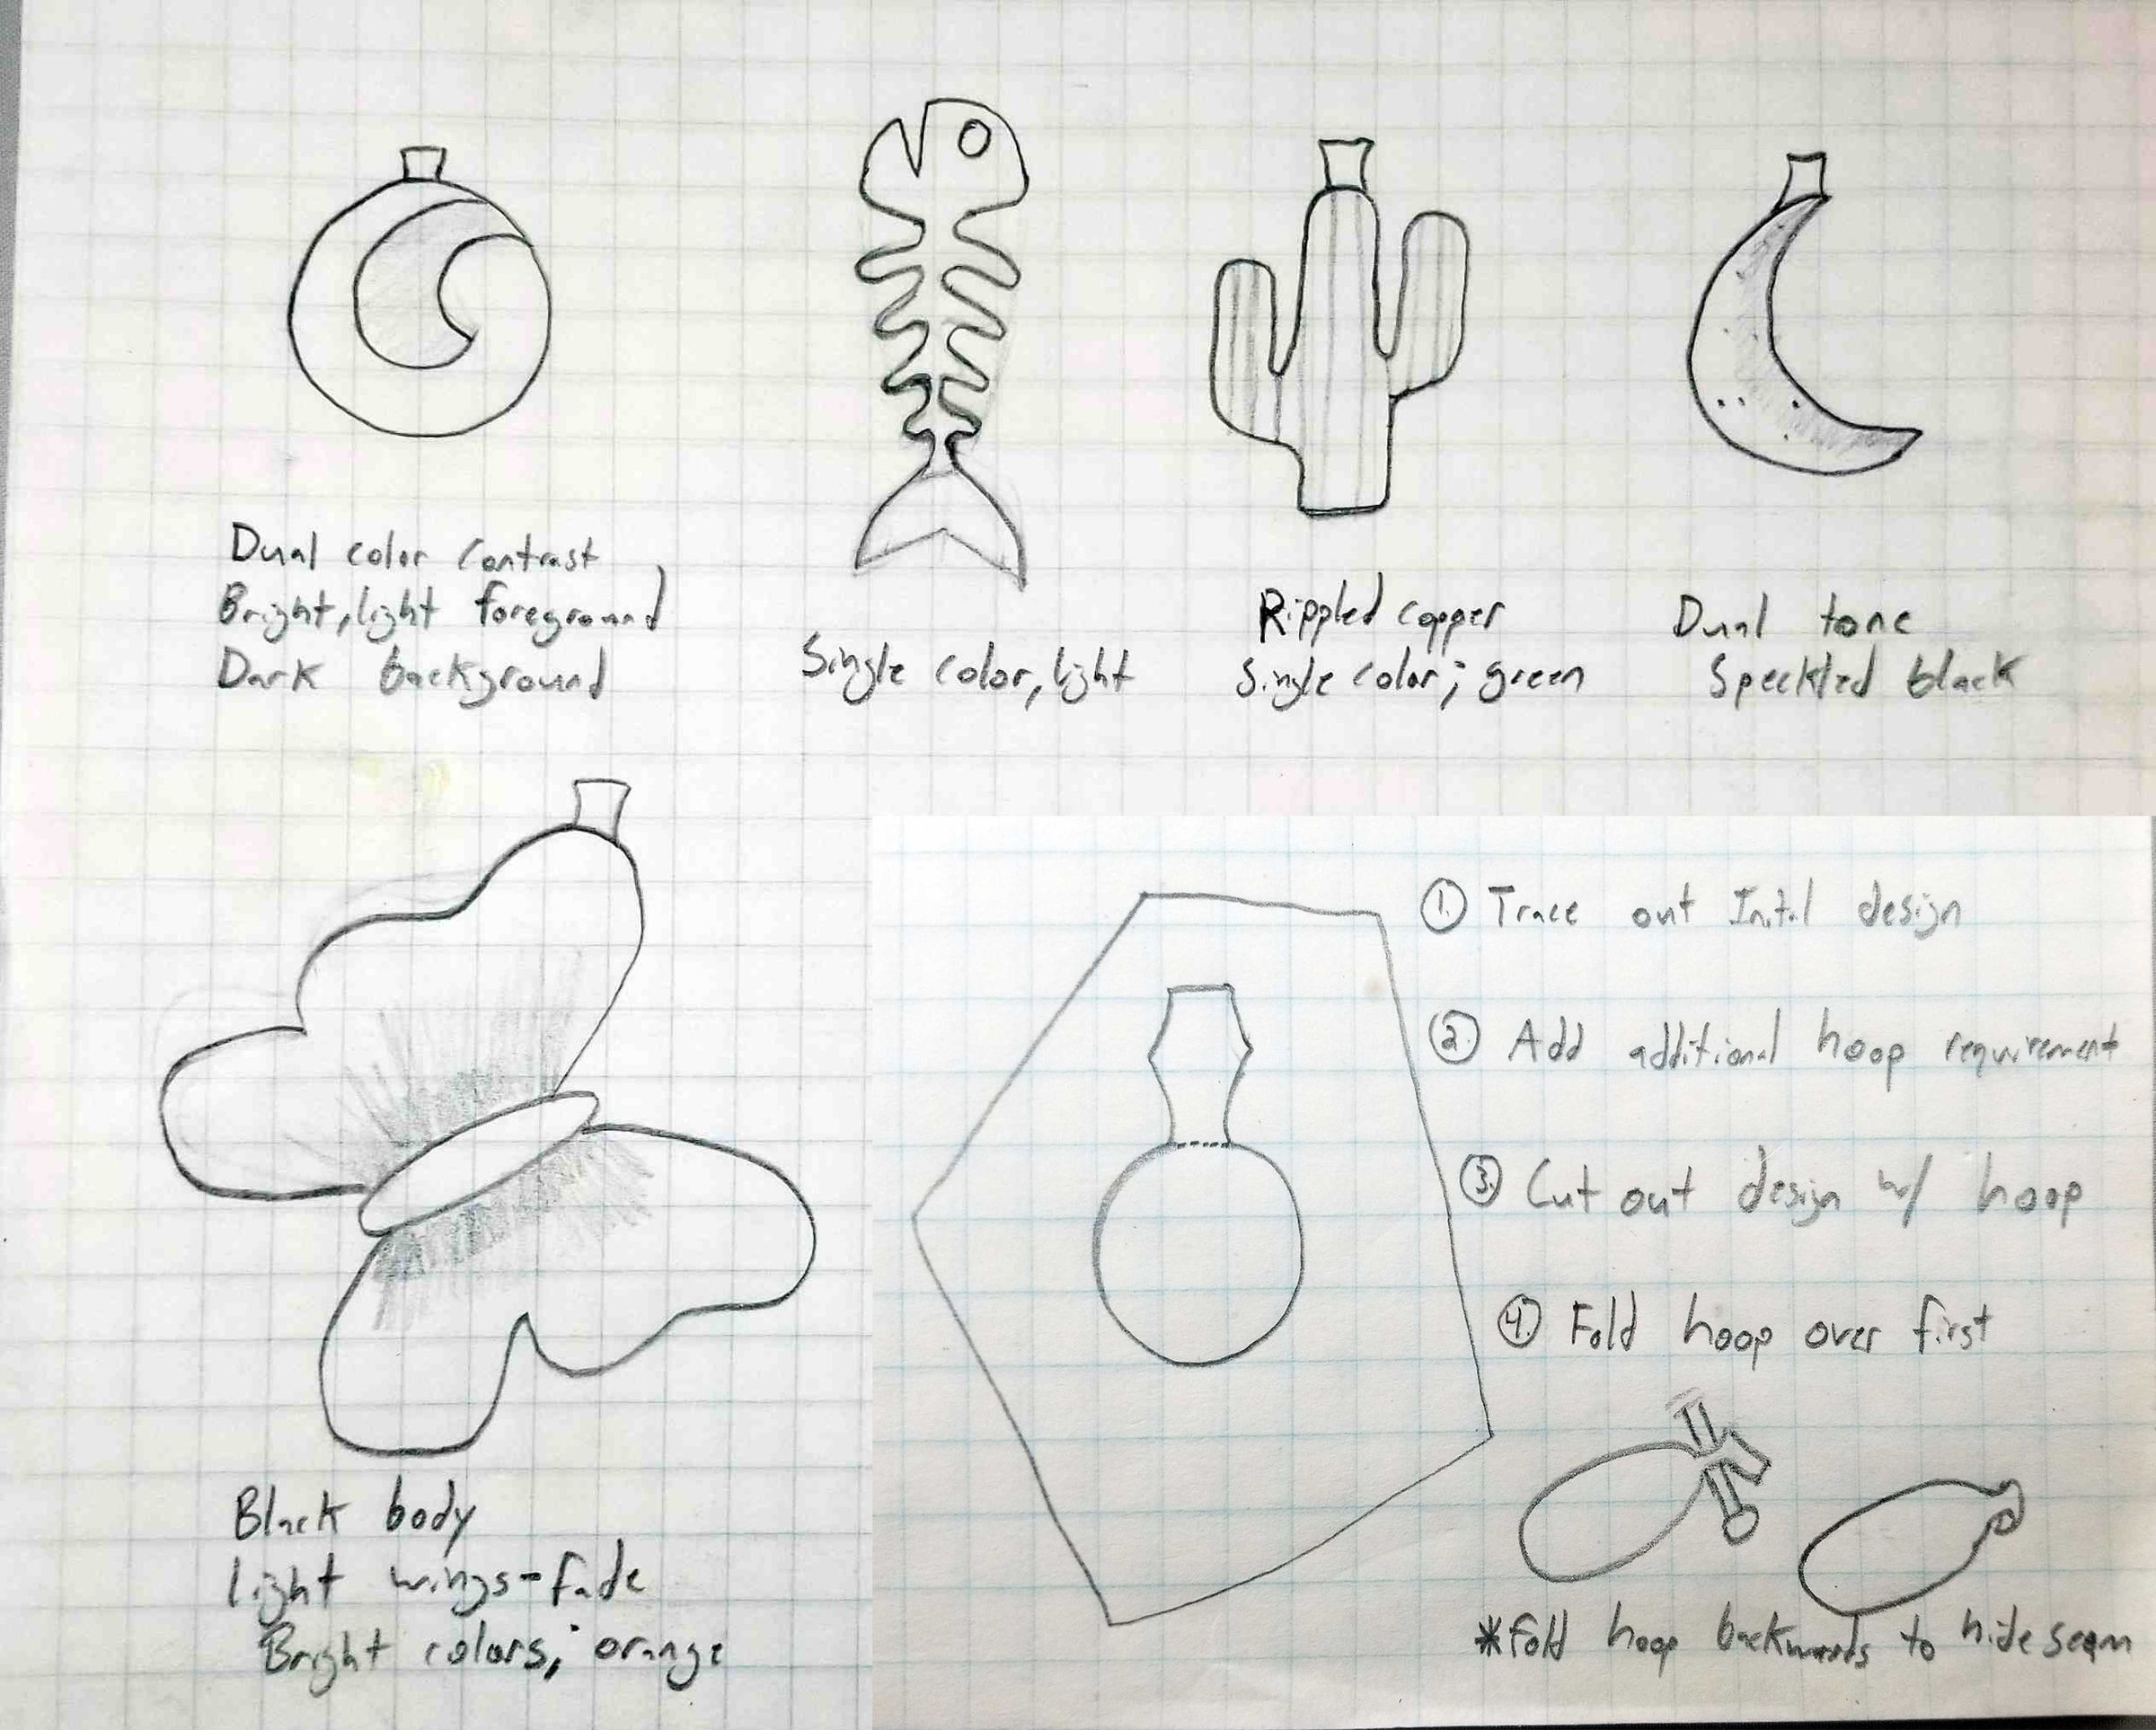 Dual color contrast
Bright, light foreground
Dark background
Single color, light
Rippled copper
Single color; green
Dual tone
Speckled black
Black body
light wings-fade
Bright colors; orange
1. Trace out Inital design
2. Add additional hoop requirement
3. Cut out design w/ hoop
4. Fold hoop over first
*Fold hoop backwards to hide seam